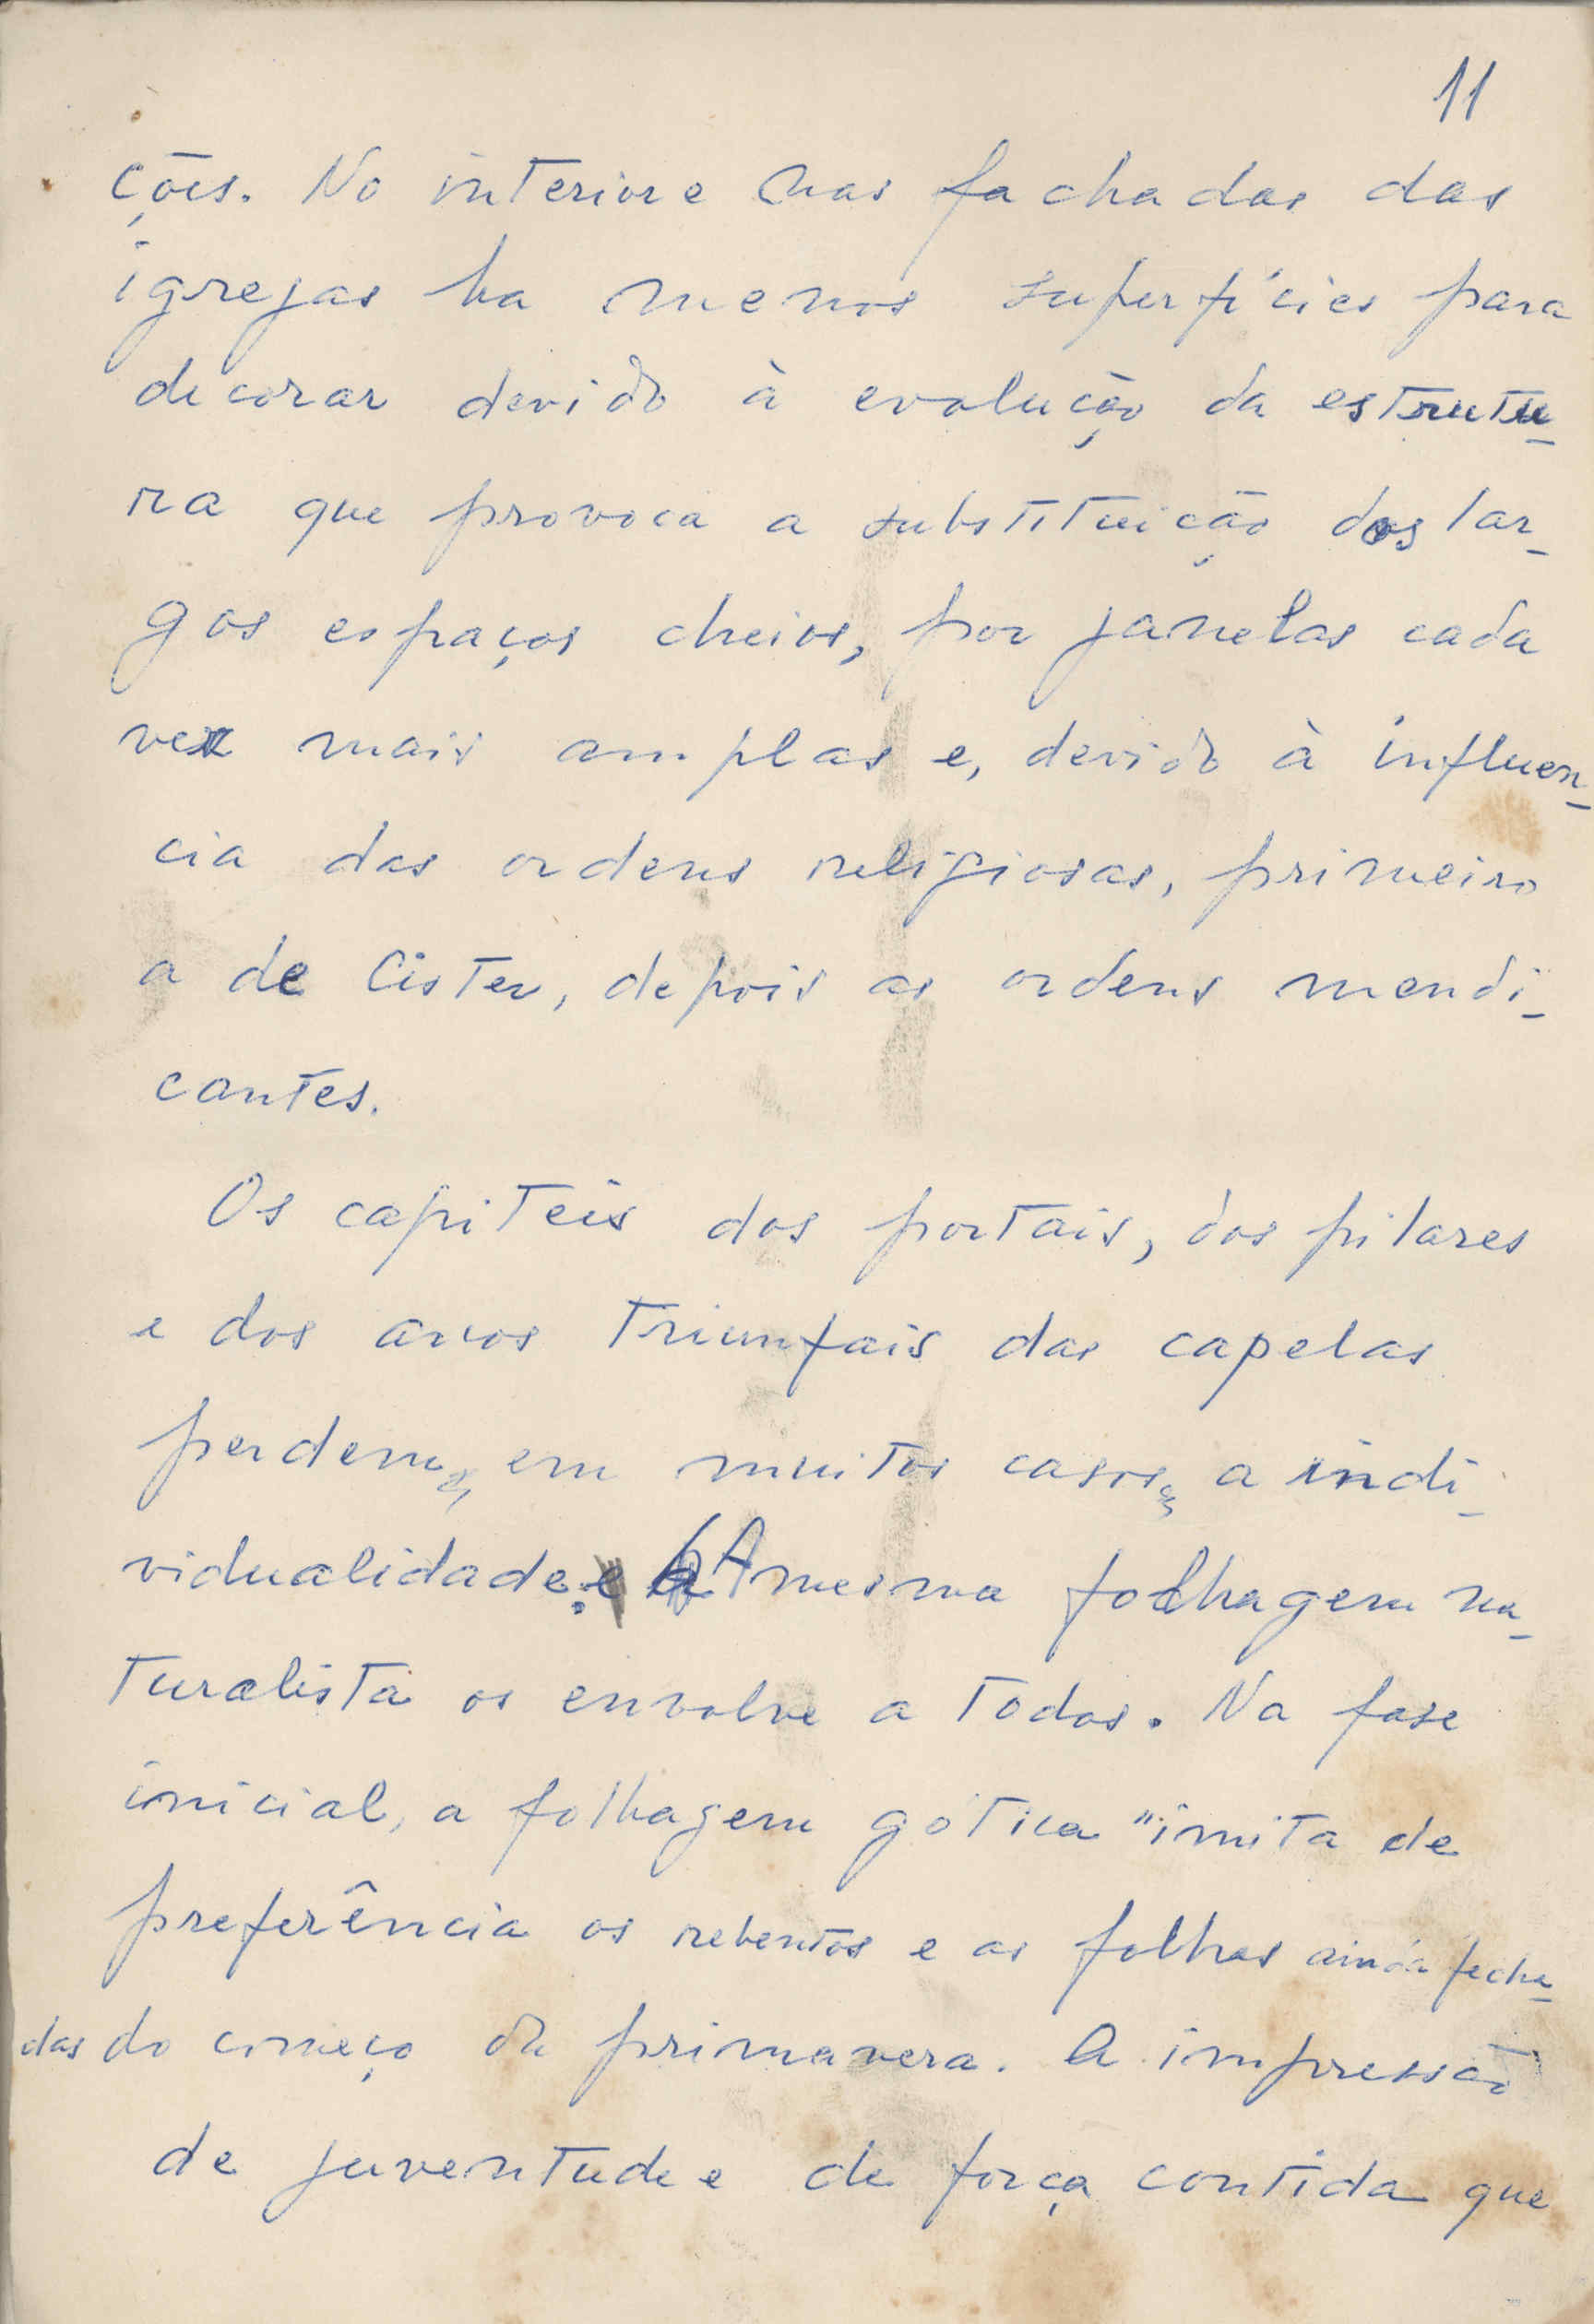 11
ções. No interior e nas fachadas das
igrejas ha menos superfícies para
decorar devido à evolução da estrutu-
ra que provoca a substituição dos lar-
gos espaços cheios, por janelas cada
vez mais amplas e, devido à influen-
cia das ordens religiosas, primeiro
a de Cister, depois as ordens mendi-
cantes.
Os capiteis dos portais, dos pilares
e dos arcos triunfais das capelas
perdem, em muitos casos, a indi-
vidualidade. A mesma folhagem na-
turalista os envolve a todos. Na fase
inicial, a folhagem gótica "imita de
preferência os rebentos e as folhas ainda fecha-
das do começo da primavera. A impressão
de juventude e de força contida que